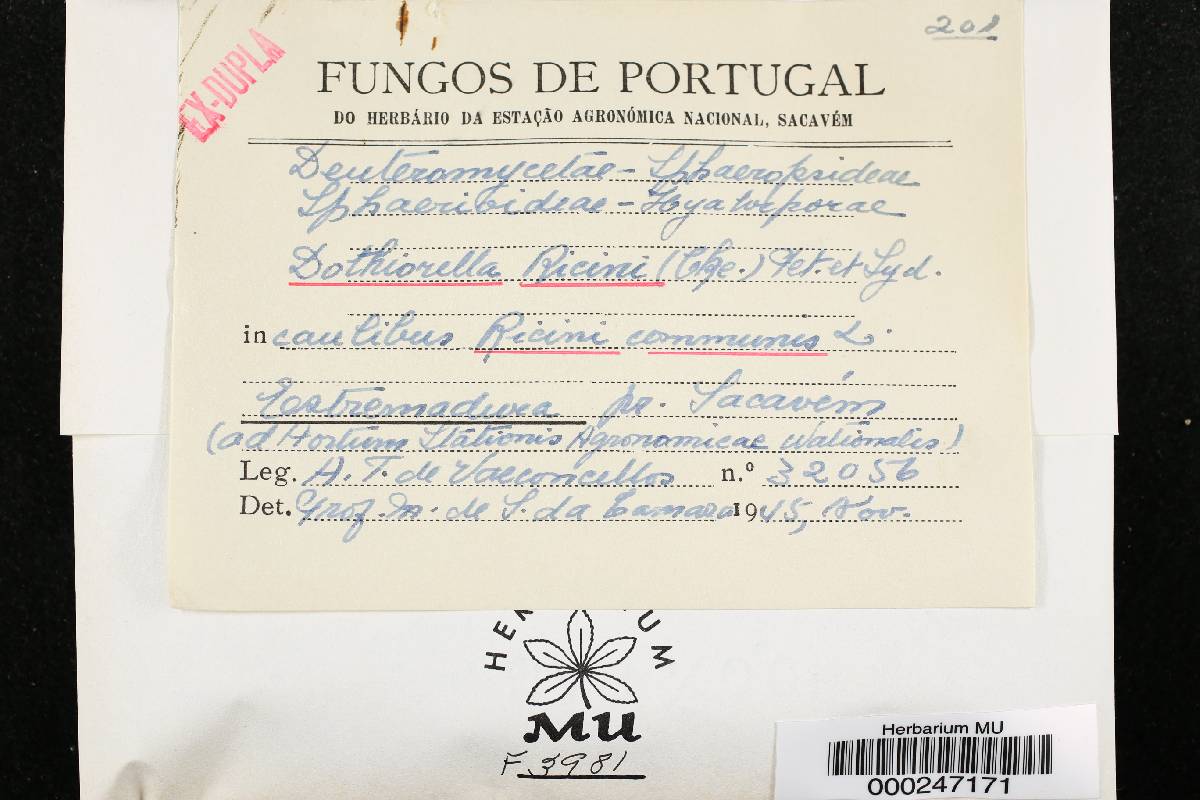 201
EX-DUPLA
FUNGOS DE PORTUGAL
DO HERBÁRIO DA ESTAÇÃO AGRONÓMICA NACIONAL, SACAVÉM
Deuteromycetae - Sphaeropsideae
Sphaerioideae - Hyalosporae
Dothiorella Ricini (Cke.) Pet. et Syd.
in caulibus Ricini communis L.
Estremadura pr. Sacavém
(ad Hortum Stationis Agronomicae Nationalis)
Leg. A. T. de Vasconcellos n.º 32056
Det. Prof. M. de S. da Camara 1945, Nov.
MU
F.3981
Herbarium MU
000247171